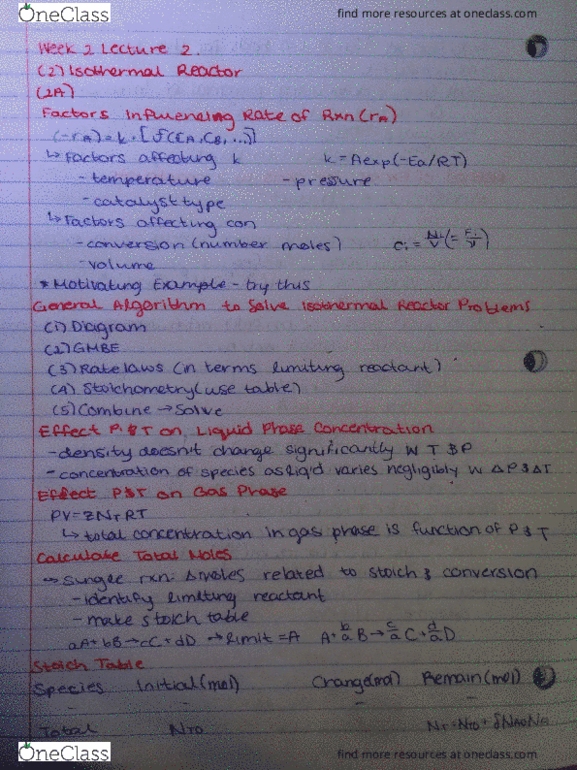 OneClass
find more resources at oneclass.com
Week 2 Lecture 2.
(2) Isothermal Reactor
(2A)
Factors Influencing Rate of Rxn (rA)
(-rA) = k · [f(CA, CB, ...)]
↳ Factors affecting k k = Aexp(-Ea/RT)
- temperature - pressure
- catalyst type
↳ Factors affecting con
- conversion (number moles) Ci = Ni/V (= Fi/V)
- volume
* Motivating Example - try this
General Algorithm to Solve Isothermal Reactor Problems
(1) Diagram
(2) GMBE
(3) Rate laws (in terms limiting reactant)
(4) Stoichometry (use table)
(5) Combine → Solve
Effect P & T on Liquid Phase Concentration
- density doesn't change significantly w T & P
- concentration of species as liq'd varies negligibly w ΔP & ΔT
Effect P & T on Gas Phase
PV = ZNTRT
↳ total concentration in gas phase is function of P & T
Calculate Total Moles
→ Single rxn: Δmoles related to stoich & conversion
- identify limiting reactant
- make stoich table
aA + bB → cC + dD → limit = A A + b/a B → c/a C + d/a D
Stoich Table
Species Initial (mol) Change (mol) Remain (mol)
- - -
Total NTO NT = NTO +
OneClass
find more resources at oneclass.com